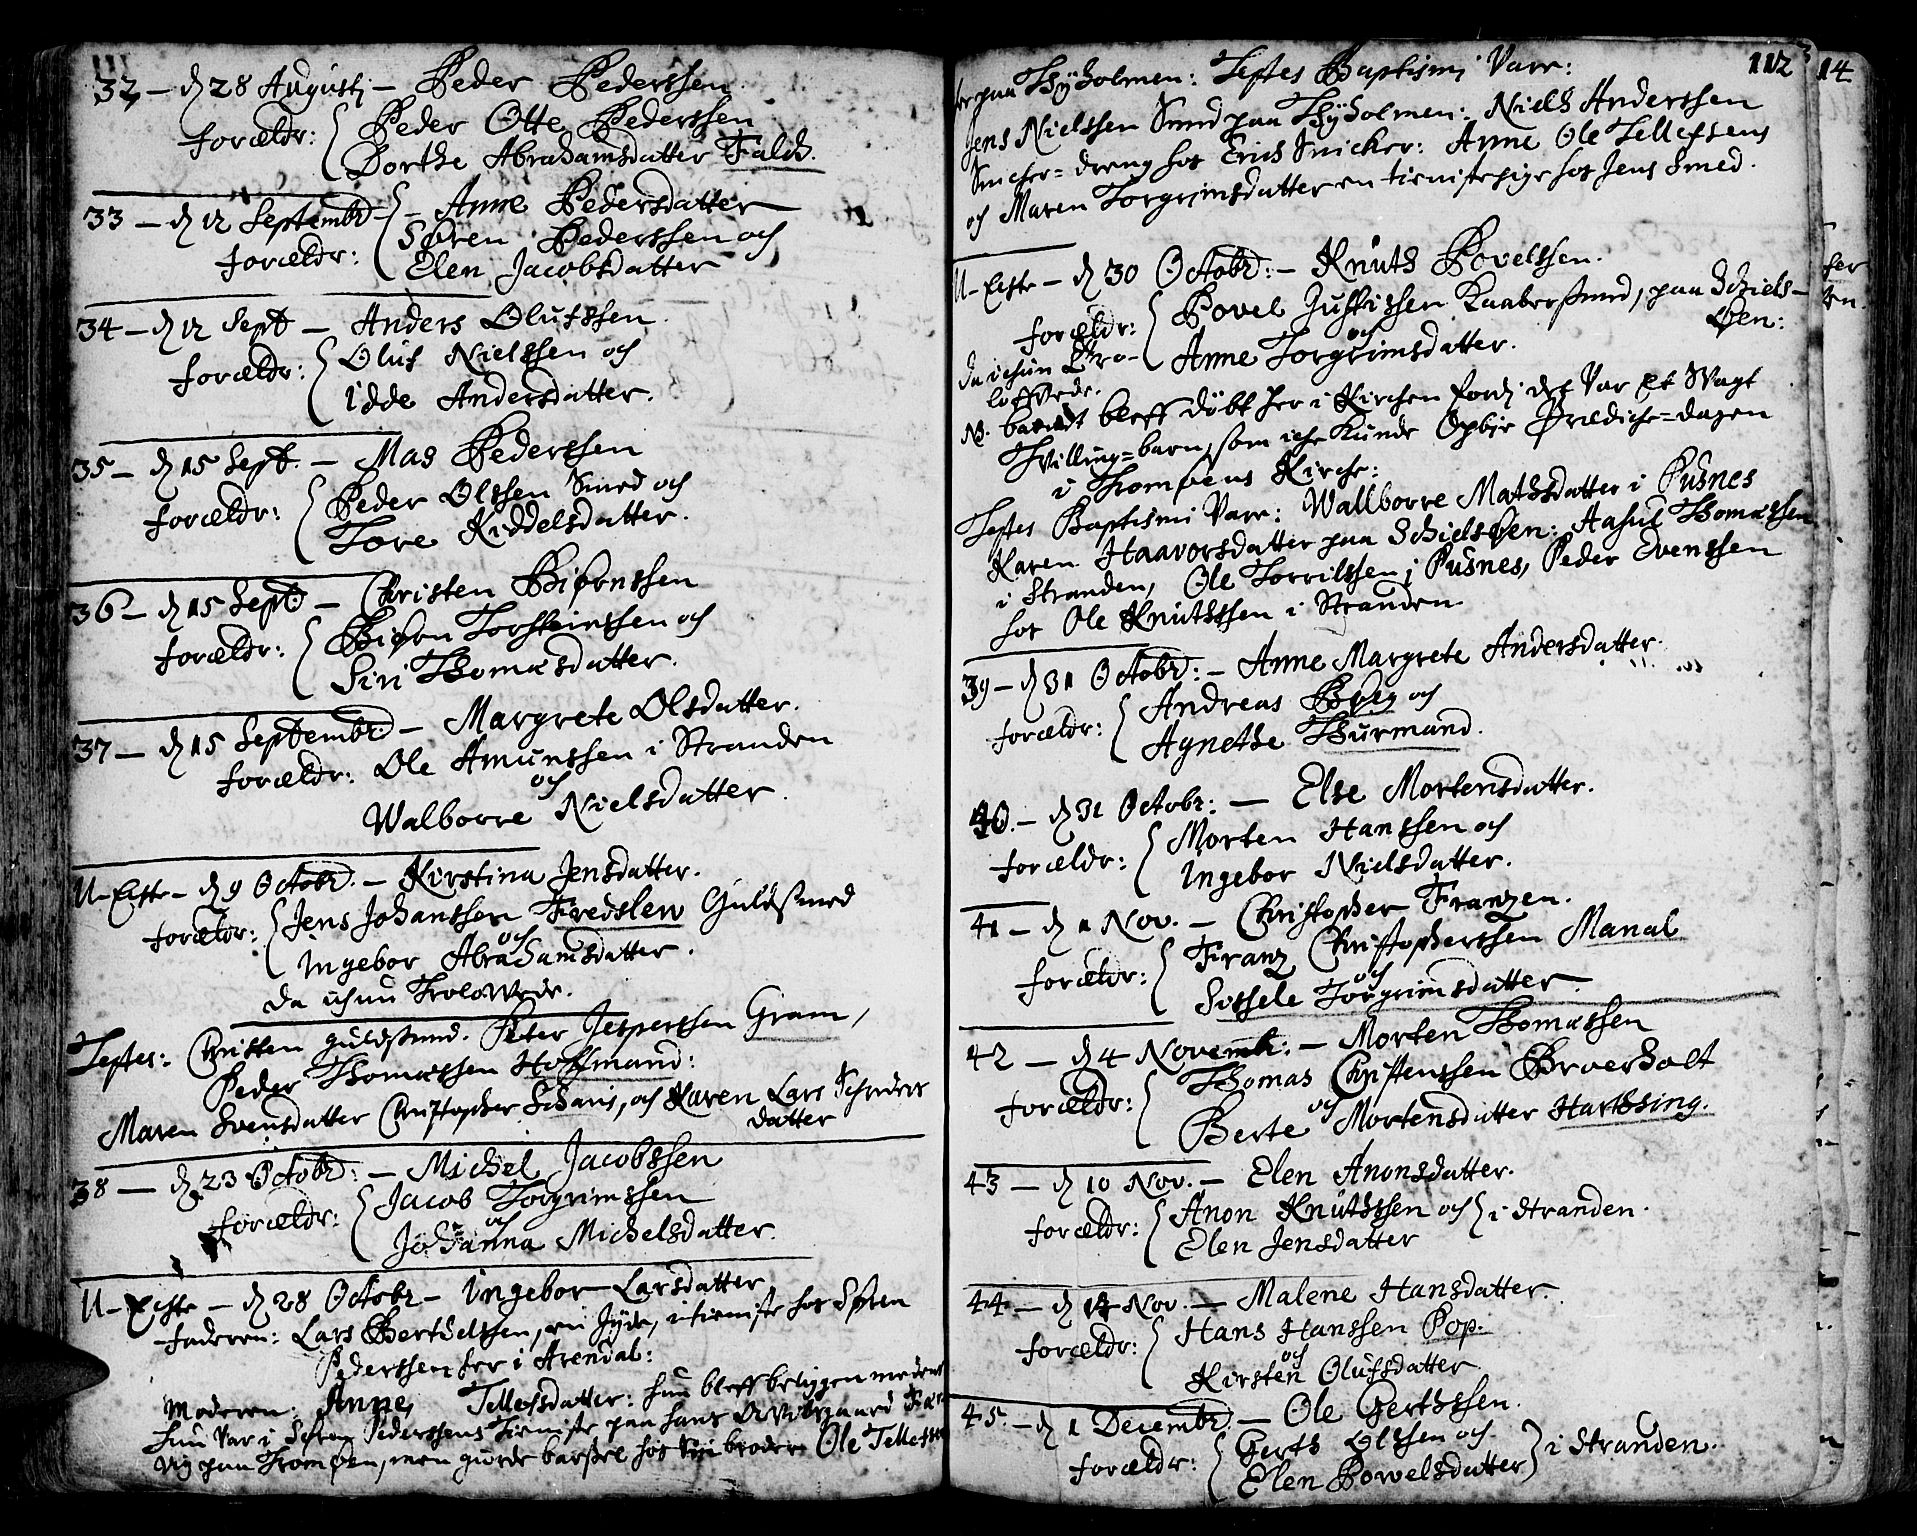 111
32 – d 28 Augustj – Peder Pederssen
forældr: Peder Otte Pederssen
Dorthe Abrahamsdatter Falch.
33 – d 12 Septembr – Anne Pedersdatter
Søren Pederssen och
forældr: Elen Jacobsdatter
34 – d 12 Sept – Anders Olufssen.
forældr: Oluf Nielssen och
Idde Andersdatter.
35 – d 15 Sept. – Mas Pederssen
forældr: Peder Olssen Smed och
Tore Kiddelsdatter.
36 – d 15 Sept – Christen Biørnssen
forældr: Biørn Torsteinssen och
Siri Thomæsdatter.
37 – d 15 Septembr – Margrete Olsdatter.
forældr: Ole Amunssen i Stranden
och
Walborre Nielsdatter.
U-Echte – d 9 Octobr. – Kirstina Jensdatter.
forældr: Jens Johanssen Fredslew Guldsmed
och
Ingebor Abrahamsdatter.
da ichun Trolowede.
Testes: Christen guldsmed. Peter Jesperssen Gram,
Peder Thomæssen Hoffmand:
Maren Svensdatter Christopher , och Karen Lars
datter
38 – d 23 Octobr: – Michel Jacobssen
forældr: Jacob Torgrimssen
och
Johanna Michelsdatter.
U-Echte – d 28 Octobr – Ingebor Larsdatter
faderen: Lars Bertelssen, en Jyde, i tieniste hos Søren
Pederssen her i Arendal:
Moderen: Anne Tellefsdatter: hun bleff beliggen medens
hun var i Søren Pederssens tieniste paa hans
paa Tromøen, men giorde barsel hos brodere Ole Tellefssen
112
paa Thyholmen: Testes Baptismi Varr:
Jens Nielssen Smed paa Thyholmen: Niels Anderssen
Snicker-dreng hos Erich Snicker: Anne Ole Tellefsens
och Maren Torgrimsdatter en tienistepige hos Jens Smed.
U-Echte – d 30 Octobr: – Knuth Povelssen.
forældr: Povel Justissen Kaabersmed, paa Schiels-
øen:
och
Anne Torgrimsdatter.
da ichun Tro-
loffvede.
NB. barnet bleff døbt her i Kirchen fordj det Var et Svagt
Tvilling-barn, som iche kunde Opbie Prædiche-dagen
i Tromøens Kirche:
Testes Baptismi Varr: Wallborre Mathsdatter i Pusnes
Karen Haavorsdatter paa Schielsøen: Aasul Thomæssen
i Stranden, Ole Torrilssen i Pusnes, Peder Evenssen
hos Ole Knuthssen i Stranden
39 – d 31 Octobr: – Anne Margrete Andersdatter.
forældr: Andreas Bøeg och
Agnethe Thurmand.
40. – d 31 Octobr: – Else Mortensdatter.
forældr: Morten Hanssen och
Ingebor Nielsdatter.
41 – d 1 Nov. – Christopher Franzen.
forældr: Franz Christopherssen Manal
och
Sissele Torgrimsdatter.
42 – d 4 Novemb: – Morten Thomæssen
forældr: Thomas Christenssen Broerholt
och
Berte Mortensdatter Harbsing.
43 – d 10 Nov. – Elen Anonsdatter.
forældr: Anon Knuthssen och i Stranden.
Elen Jensdatter
44 – d 14 Nov. – Malene Hansdatter.
forældr: Hans Hanssen Pop.
och
Kirsten Olufsdatter
45. – d 1 Decembr. – Ole Gerthssen.
forældr: Gerth Olssen och i Stranden.
Elen Powelsdatter
14